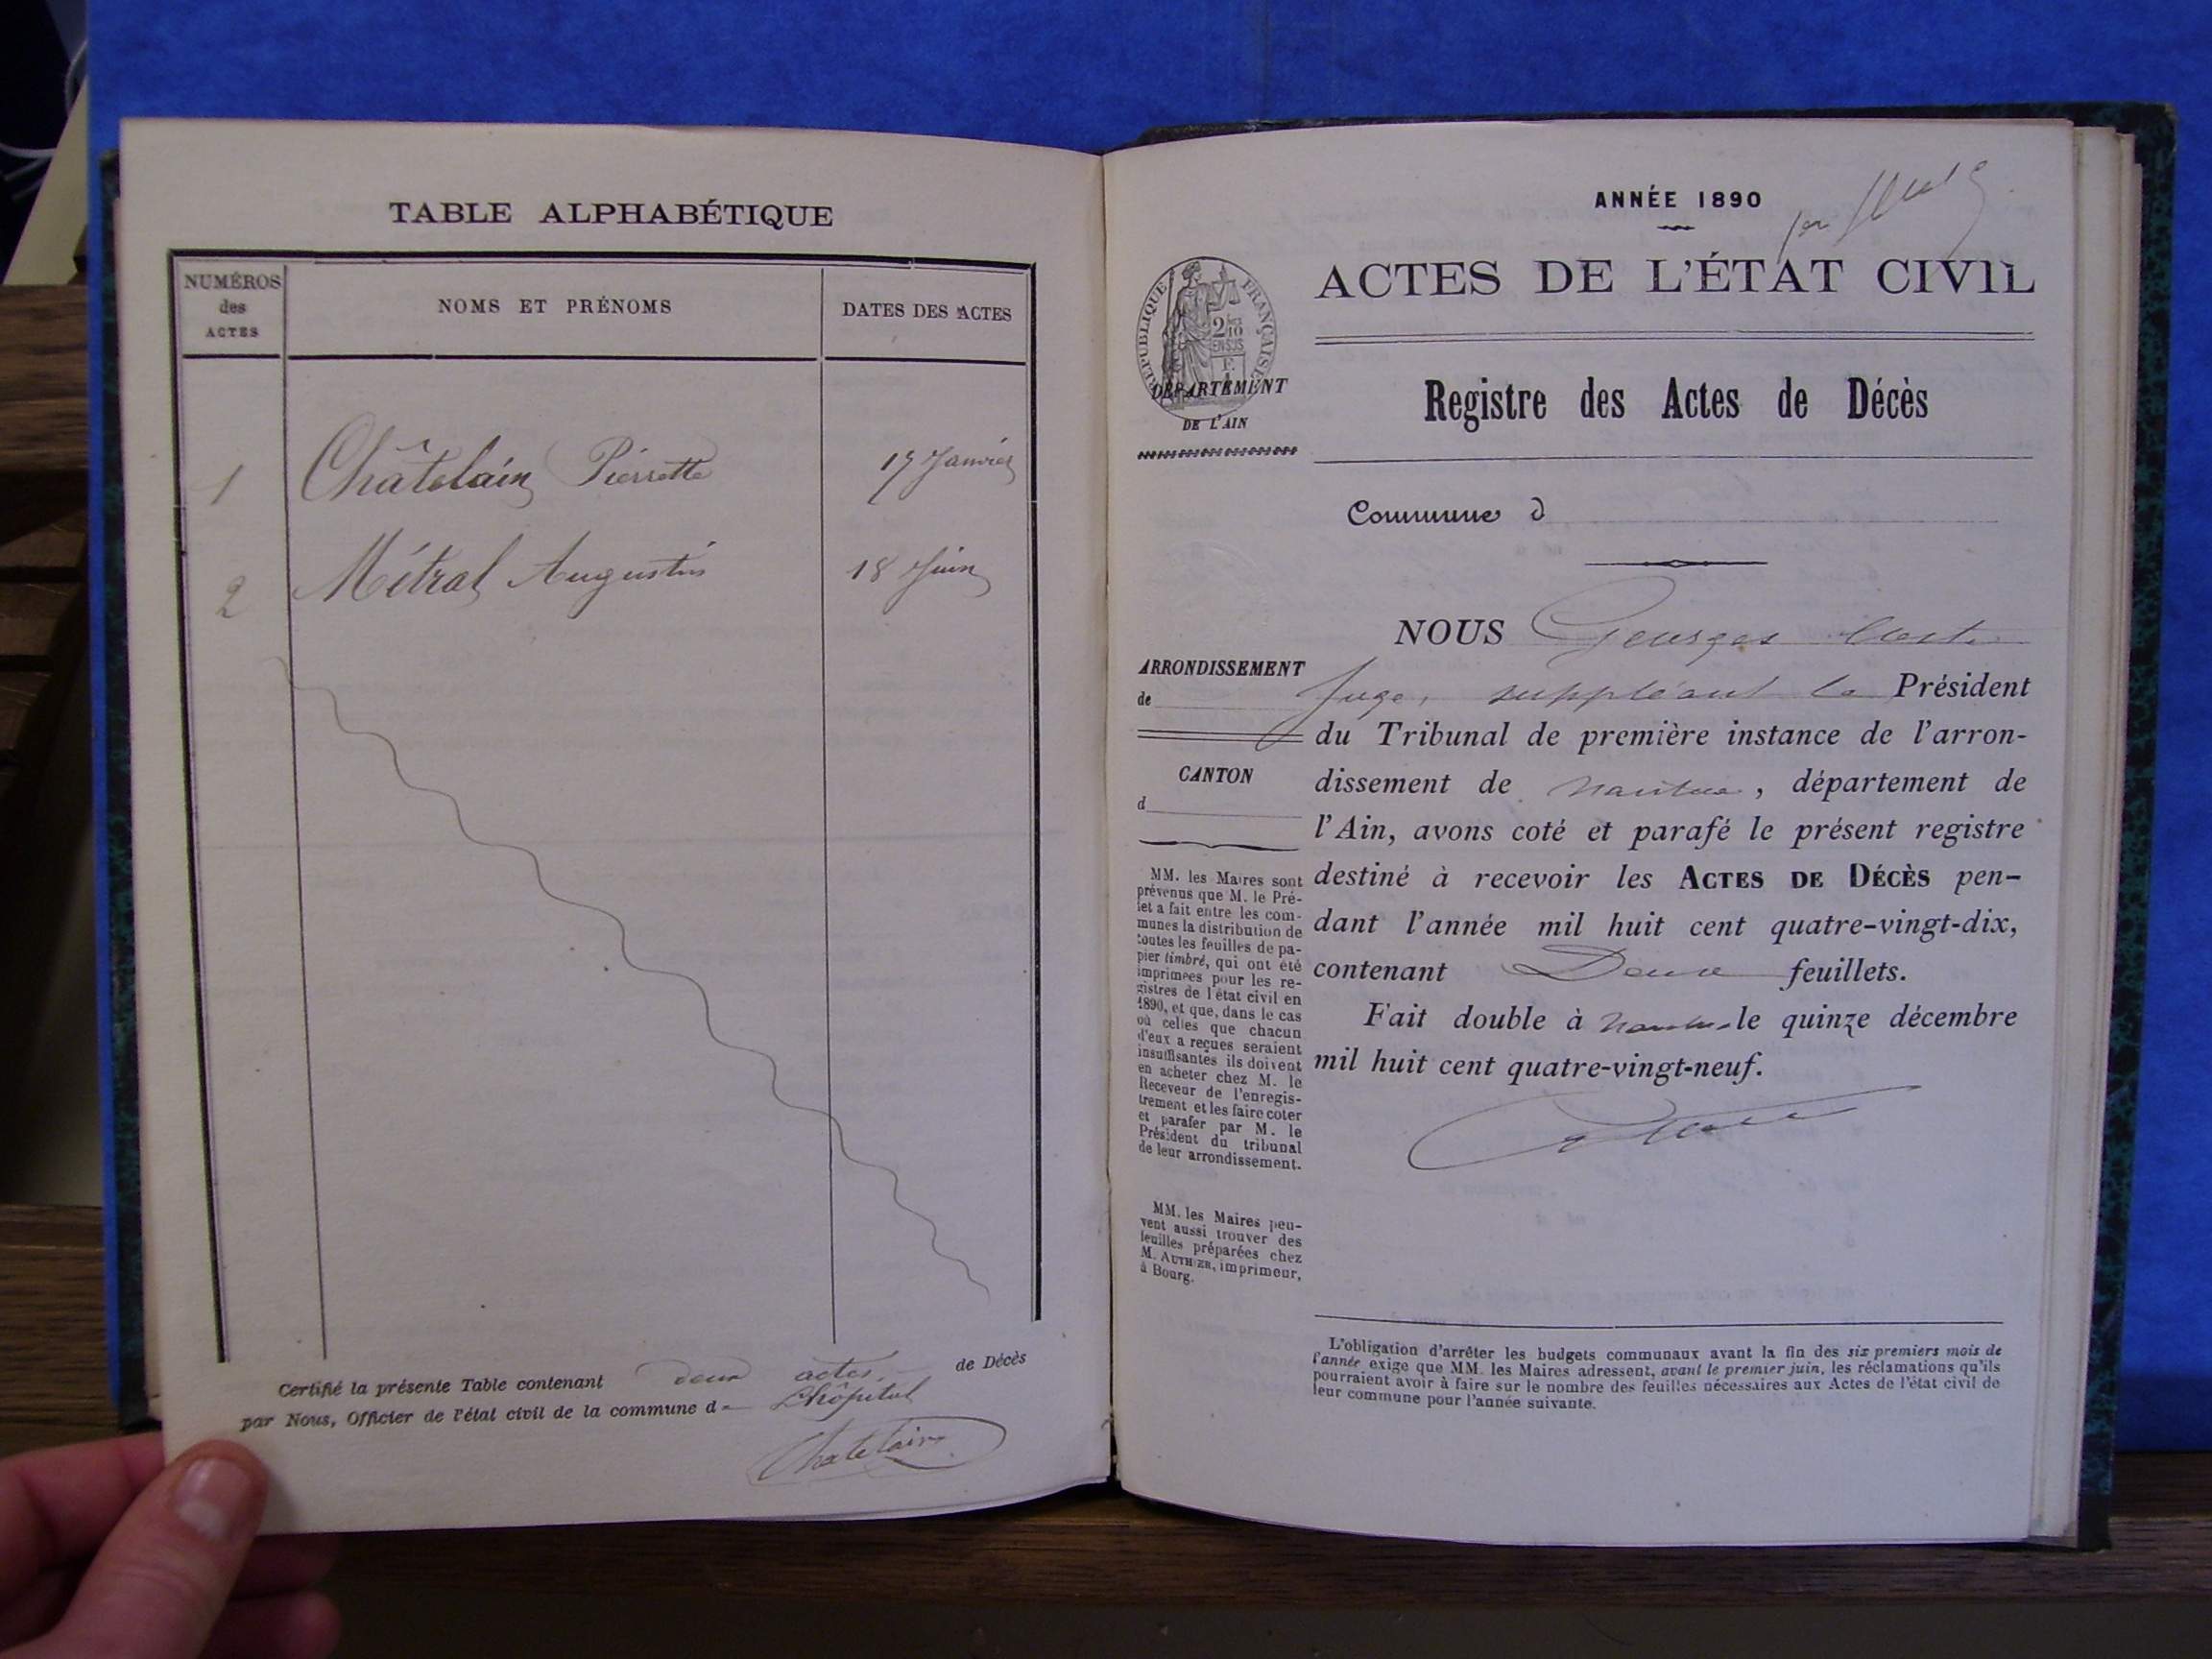 TABLE ALPHABÉTIQUE
NUMÉROS
des
ACTES
NOMS ET PRÉNOMS
DATES DES ACTES
1 Châtelain Pierrette 17 Janvier
2 Métral Augustin 18 Juin
Certifié la présente Table contenant deux actes de Décès
par Nous, Officier de l'état civil de la commune d L'hôpital
Chatelain
ANNÉE 1890
1er
ACTES DE L'ÉTAT CIVIL
RÉPUBLIQUE FRANÇAISE
2/10
EN SUS
DÉPARTEMENT
DE L'AIN
Registre des Actes de Décès
Commune d
NOUS Georges
Juge, suppléant le Président
du Tribunal de première instance de l'arron-
dissement de Nantua, département de
l'Ain, avons coté et parafé le présent registre
destiné à recevoir les ACTES DE DÉCÈS pen-
dant l'année mil huit cent quatre-vingt-dix,
contenant Deux feuillets.
Fait double à Nantua le quinze décembre
mil huit cent quatre-vingt-neuf.
ARRONDISSEMENT
de
CANTON
d
MM. les Maires sont
prévenus que M. le Pré-
fet a fait entre les com-
munes la distribution de
toutes les feuilles de pa-
pier timbré, qui ont été
imprimées pour les re-
gistres de l'état civil en
1890, et que, dans le cas
où celles que chacun
d'eux a reçues seraient
insuffisantes ils doivent
en acheter chez M. le
Receveur de l'enregis-
trement et les faire coter
et parafer par M. le
Président du tribunal
de leur arrondissement.
MM. les Maires peu-
vent aussi trouver des
feuilles préparées chez
M. AUTHIER, imprimeur,
à Bourg.
L'obligation d'arrêter les budgets communaux avant la fin des six premiers mois de
l'année exige que MM. les Maires adressent, avant le premier juin, les réclamations qu'ils
pourraient avoir à faire sur le nombre des feuilles nécessaires aux Actes de l'état civil de
leur commune pour l'année suivante.